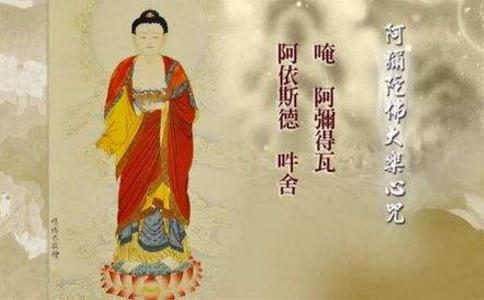 阿彌陀佛大樂心咒
唵 阿彌得瓦
阿依斯德 吽舍